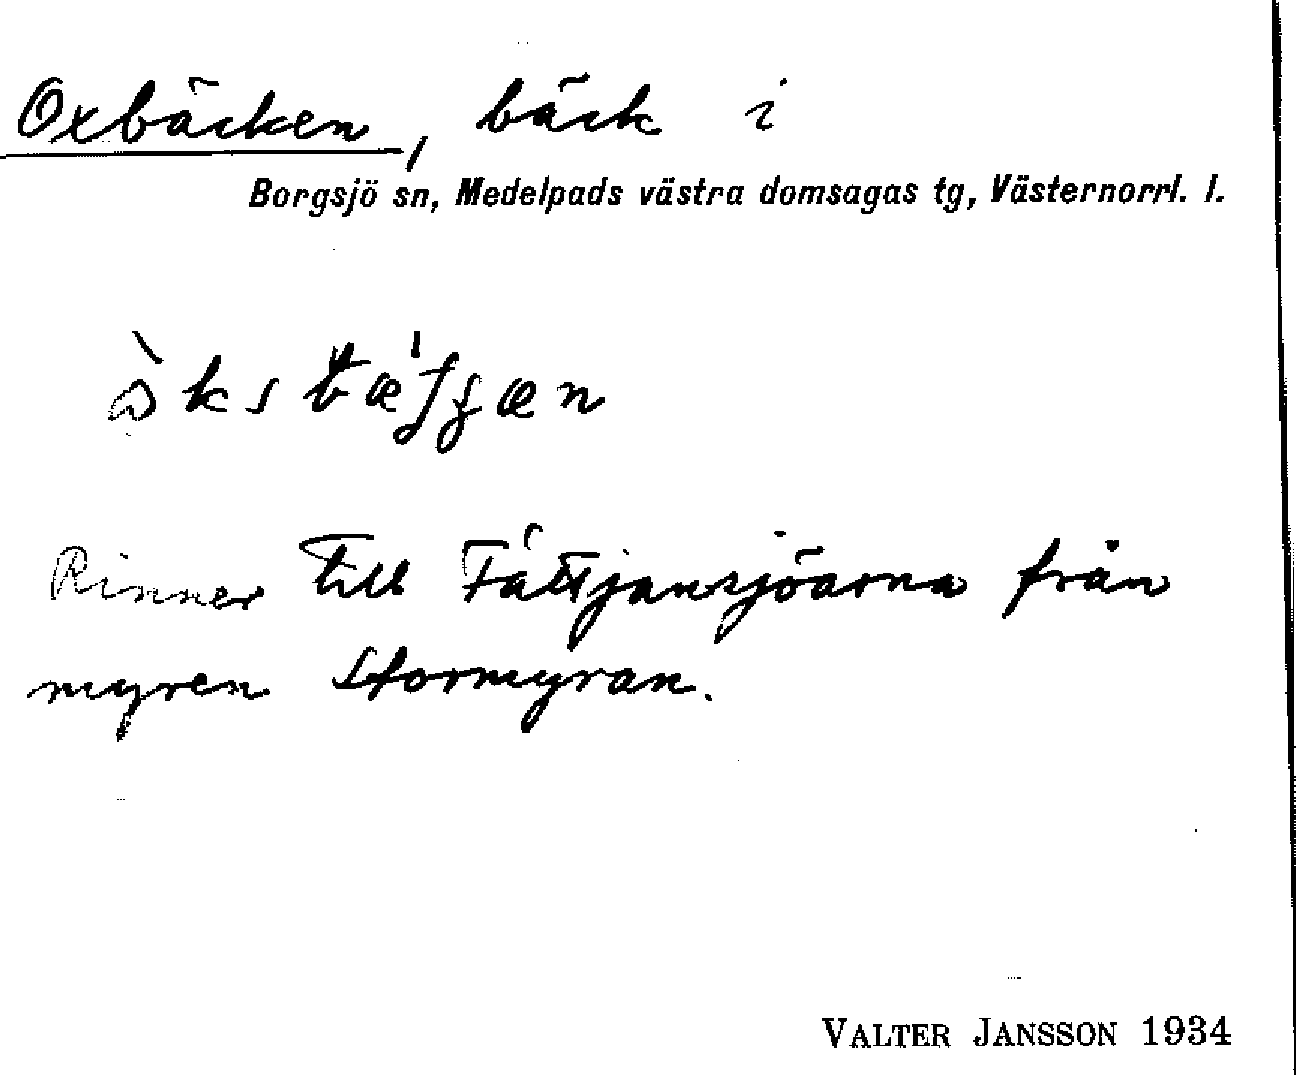 Oxbäcken, bäck i
Borgsjö sn, Medelpads västra domsagas tg, Västernorrl. l.
Rinner till Tättjansjöarna från
myren Stormyran.
VALTER JANSSON 1934